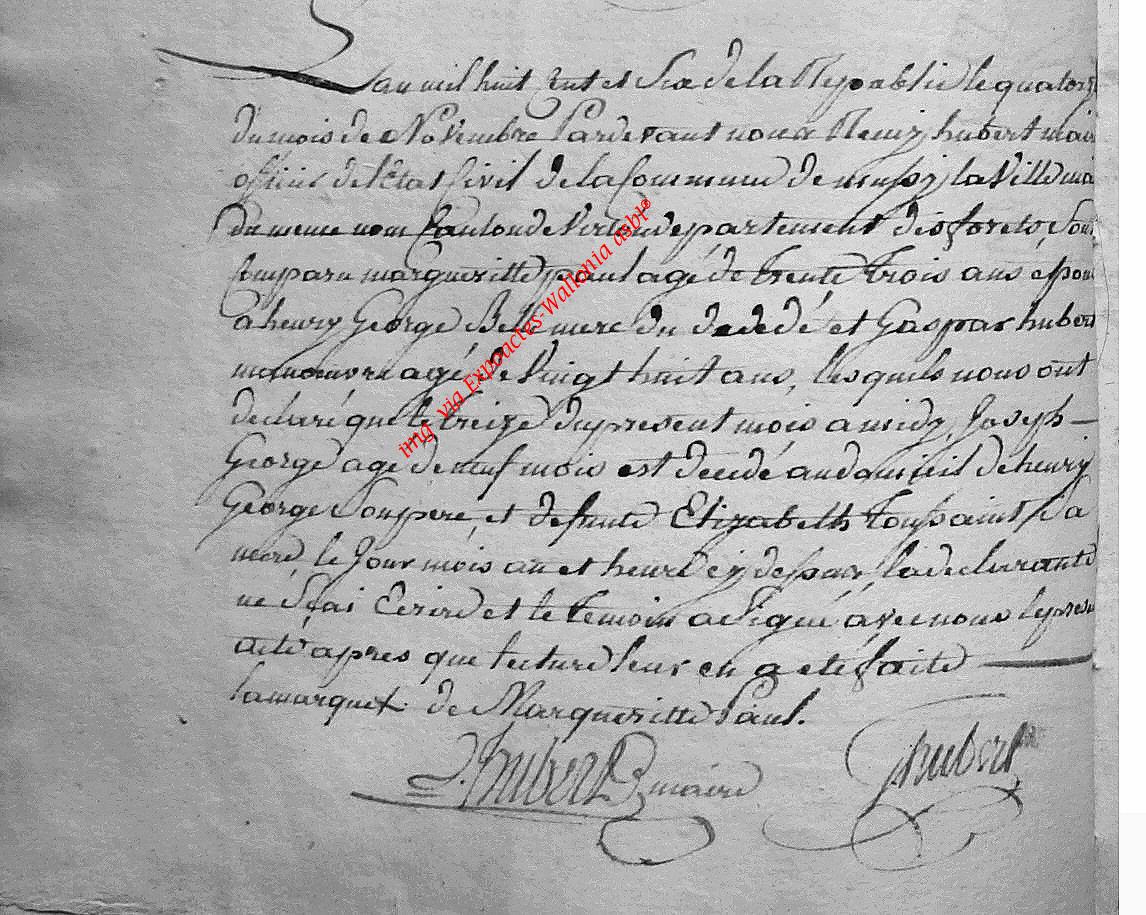 L'an mil huit Cent et Six de la Republic le quatorz
du mois de Novembre Pardevant nous Remy hubert mair
officier de l'Etat Civil de la Commune de mussy la Ville mai
du meme nom Canton de Virton departement des forets, Sont
Comparu margueritte paul agé de trente trois ans epou
a henry George Belle mere du decedé et Gaspar hubert
manoeuvre agé de Vingt huit ans, lesquels nous ont
declaré que le treize du present mois a midy, Joseph —
George agé de neuf mois est decedé au domicil de henry
George Son pere, et defunte Elizabeth Toussaint Sa
mere, le Jour mois an et heure cy dessus, la declarante
ne Sçai Ecrire et le temoin a Signé avec nous le present
acte apres que lecture leur en a eté faite —
la marque + de Margueritte Paul.
R. hubert maire
G hubert
img via Expoactes-Wallonia asbl°